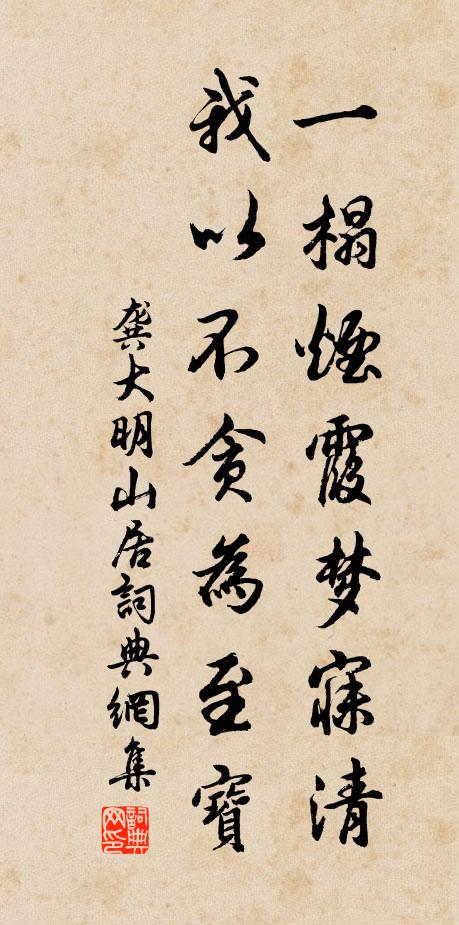 一榻煙霞梦寐清
我以不貪為至寶
龔大明山居詞典網集
詞典网印